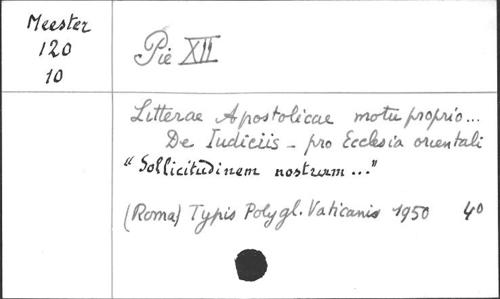 Meester
120
10
Pie XII
Litterae Apostolicae motu proprio...
De Iudiciis - pro Ecclesia orientali
"Sollicitudinem nostram..."
(Roma) Typis Polygl. Vaticanis 1950 4o